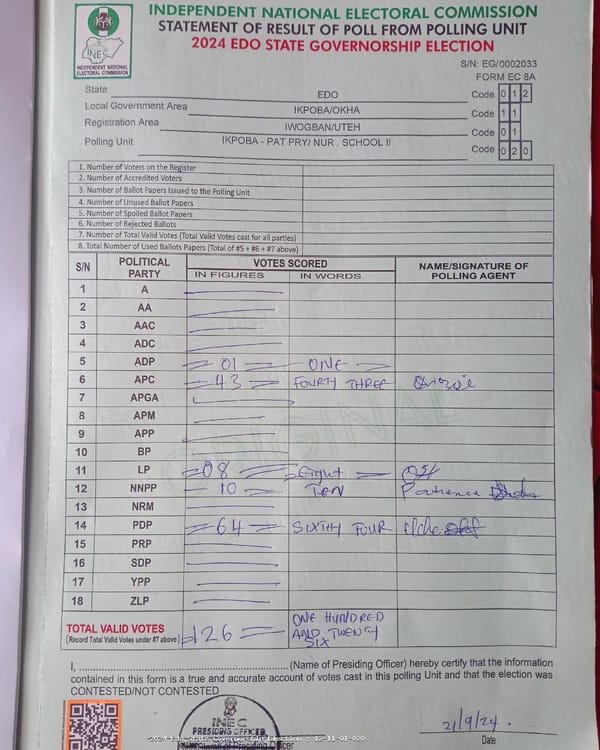 INDEPENDENT NATIONAL ELECTORAL COMMISSION
STATEMENT OF RESULT OF POLL FROM POLLING UNIT
2024 EDO STATE GOVERNORSHIP ELECTION
INEC
INDEPENDENT NATIONAL
ELECTORAL COMMISSION
S/N: EG/0002033
FORM EC 8A
State EDO Code 0 1 2
Local Government Area IKPOBA/OKHA Code 1 1
Registration Area IWOGBAN/UTEH Code 0 1
Polling Unit IKPOBA - PAT PRY/ NUR . SCHOOL II Code 0 2 0
1. Number of Voters on the Register
2. Number of Accredited Voters
3. Number of Ballot Papers Issued to the Polling Unit
4. Number of Unused Ballot Papers
5. Number of Spoiled Ballot Papers
6. Number of Rejected Ballots
7. Number of Total Valid Votes (Total Valid Votes cast for all parties)
8. Total Number of Used Ballots Papers (Total of #5 + #6 + #7 above)
S/N POLITICAL PARTY VOTES SCORED NAME/SIGNATURE OF POLLING AGENT
IN FIGURES IN WORDS
1 A
2 AA
3 AAC
4 ADC
5 ADP 01 ONE
6 APC 43 FOURTY THREE
7 APGA
8 APM
9 APP
10 BP
11 LP 08 Eight
12 NNPP 10 TEN Patience
13 NRM
14 PDP 64 SIXTH FOUR
15 PRP
16 SDP
17 YPP
18 ZLP
ORIGINAL
TOTAL VALID VOTES 126 ONE HUNDRED
(Record Total Valid Votes under #7 above) AND TWENTY
SIX
I, (Name of Presiding Officer) hereby certify that the information
contained in this form is a true and accurate account of votes cast in this polling Unit and that the election was
CONTESTED/NOT CONTESTED
INEC
PRESIDING OFFICER
2/9/24.
Date